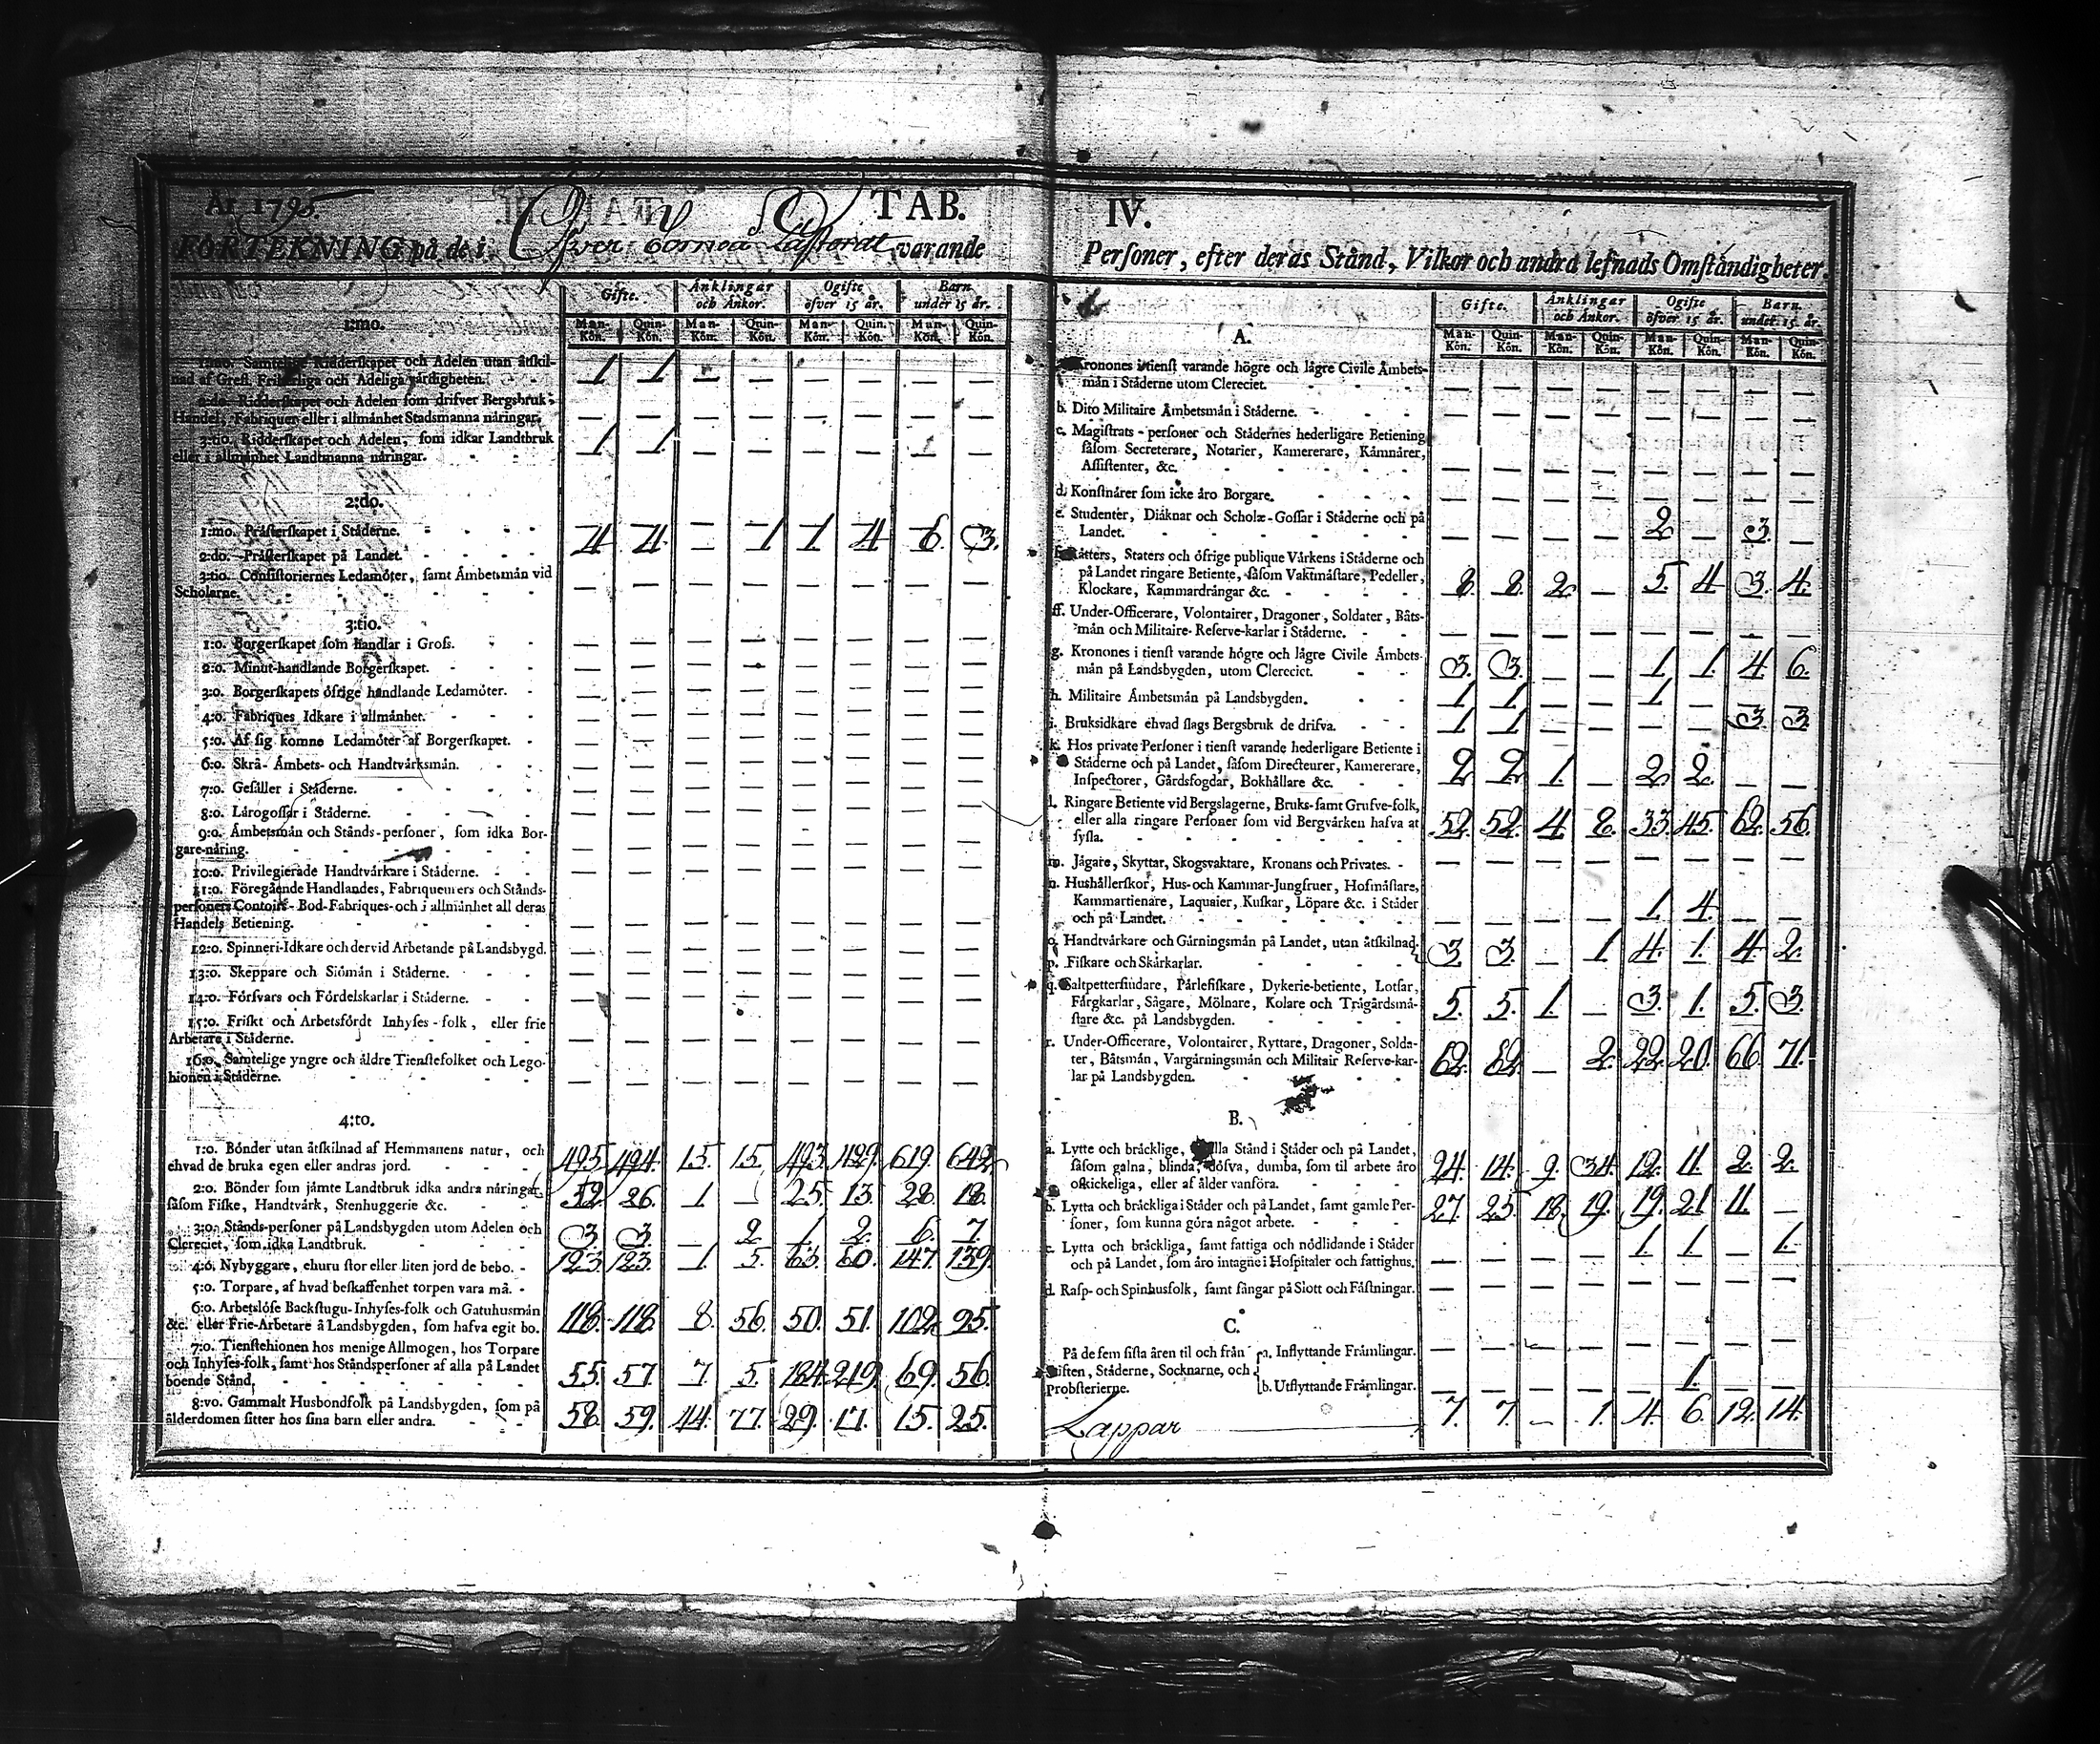 År 1795. TAB. IV.
FÖRTEKNING på de i Öfver Torneå varande Personer, efter deras Stånd, Vilkor och andra lefnads Omständigheter.
Gifte. Änklingar och Änkor. Ogifte öfver 15 år. Barn under 15 år.
Man-Kön. Quin-Kön. Man-Kön. Quin-Kön. Man-Kön. Quin-Kön. Man-Kön. Quin-Kön.
1:mo.
1:mo. Samtelige Ridderskapet och Adelen utan åtskil-
nad af Grefl. Friherrliga och Adeliga värdigheten. 1 1 — — — — — —
2:do. Ridderskapet och Adelen som drifver Bergsbruk,
Handel, Fabriquer eller i allmånhet Stadsmanna nåringar. — — — — — — — —
3:tio. Ridderskapet och Adelen, som idkar Landtbruk
eller i allmånhet Landtmanna nåringar. 1 1 — — — — — —
2:do.
1:mo. Pråsterskapet i Ståderne.
2:do. Pråsterskapet på Landet. 4 4 — 1 1 4 6 3.
3:tio. Consistoriernes Ledamöter, samt Åmbetsmån vid
Scholarne. — — — — — — — —
3:tio.
1:o. Borgerskapet som handlar i Gross. — — — — — — — —
2:o. Minut-handlande Borgerskapet. — — — — — — — —
3:o. Borgerskapets öfrige handlande Ledamöter. — — — — — — — —
4:o. Fabriques Idkare i allmånhet. — — — — — — — —
5:o. Af sig komne Ledamöter af Borgerskapet. — — — — — — — —
6:o. Skrå- Åmbets- och Handtvårksmån. — — — — — — — —
7:o. Gesåller i Ståderne. — — — — — — — —
8:o. Lårogossar i Ståderne. — — — — — — — —
9:o. Åmbetsmån och Stånds-personer, som idka Bor-
gare-nåring. — — — — — — — —
10:o. Privilegierade Handtvårkare i Ståderne. — — — — — — — —
11:o. Föregående Handlandes, Fabriqueurers och Stånds-
personers Contoirs- Bod-Fabriques-och i allmånhet all deras
Handels Betiening. — — — — — — — —
12:o. Spinneri-Idkare och dervid Arbetande på Landsbygd. — — — — — — — —
13:o. Skeppare och Siömån i Ståderne. — — — — — — — —
14:o. Försvars och Fördelskarlar i Ståderne. — — — — — — — —
15:o. Friskt och Arbetsfördt Inhyses-folk, eller frie
Arbetare i Ståderne. — — — — — — — —
16:o. Samtelige yngre och åldre Tienstefolket och Lego-
hionen i Ståderne. — — — — — — — —
4:to.
1:o. Bönder utan åtskilnad af Hemmanens natur, och
ehvad de bruka egen eller andras jord. 495. 494. 15. 15. 493. 429. 619. 642.
2:o. Bönder som jåmte Landtbruk idka andra nåringar,
såsom Fiske, Handtvårk, Stenhuggerie &c. 26. 1 — 25. 13. 28. 18.
3:o. Stånds-personer på Landsbygden utom Adelen och
Clereciet, som idka Landtbruk. 3 3 — 2 1 2. 6. 7.
4:o. Nybyggare, ehuru stor eller liten jord de bebo. 123. 123. 1. 5. 63. 60. 147. 139.
5:o. Torpare, af hvad beskaffenhet torpen vara må.
6:o. Arbetslöse Backstugu-Inhyses-folk och Gatuhusmån
&c. eller Frie-Arbetare å Landsbygden, som hafva egit bo. 118. 118. 8. 56. 50. 51. 102. 95.
7:o. Tienstehionen hos menige Allmogen, hos Torpare
och Inhyses-folk, samt hos Ståndspersoner af alla på Landet
boende Stånd. 55. 57. 7. 5. 184. 219. 69. 56.
8:vo. Gammalt Husbondfolk på Landsbygden, som på
ålderdomen sitter hos sina barn eller andra. 58. 59. 44. 77. 29. 17. 15. 25.
Gifte. Änklingar och Änkor. Ogifte öfver 15 år. Barn under 15 år.
Man-Kön. Quin-Kön. Man-Kön. Quin-Kön. Man-Kön. Quin-Kön. Man-Kön. Quin-Kön.
A.
Kronones i tienst varande högre och lågre Civile Åmbets-
mån i Ståderne utom Clereciet. — — — — — — — —
b. Dito Militaire Åmbetsmån i Ståderne. — — — — — — — —
c. Magistrats-personer och Stådernes hederligare Betiening
såsom Secreterare, Notarier, Kamererare, Kåmnårer,
Assistenter, &c. — — — — — — — —
d. Konstnårer som icke åro Borgare. — — — — — — — —
e. Studenter, Diåknar och Scholæ-Gossar i Ståderne och på
Landet. — — — — 2 — 3. —
f. Råtters, Staters och öfrige publique Vårkens i Ståderne och
på Landet ringare Betiente, såsom Vaktmåstare, Pedeller,
Klockare, Kammardrångar &c. 8. 8. 2. — 5. 4 3. 4.
ff. Under-Officerare, Volontairer, Dragoner, Soldater, Båts-
mån och Militaire-Reserve-karlar i Ståderne. — — — — — — — —
g. Kronones i tienst varande högre och lågre Civile Åmbets-
mån på Landsbygden, utom Clereciet. 3. 3. — — 1. 1. 4. 6.
h. Militaire Åmbetsmån på Landsbygden. 1 1 — — 1 — — —
i. Bruksidkare ehvad slags Bergsbruk de drifva. 1 1 — — — — 3. 3
k. Hos private Personer i tienst varande hederligare Betiente i
Ståderne och på Landet, såsom Directeurer, Kamererare,
Inspectorer, Gårdsfogdar, Bokhållare &c. 2 2 1. — 2 2. — —
l. Ringare Betiente vid Bergslagerne, Bruks-samt Grufve-folk,
eller alla ringare Personer som vid Bergvårken hafva at
sysla. 52. 52. 4. 8. 33. 45. 62. 56.
m. Jågare, Skyttar, Skogsvaktare, Kronans och Privates. — — — — — — — —
n. Hushållerskor, Hus-och Kammar-Jungfruer, Hofmåstare,
Kammartienare, Laquaier, Kuskar, Löpare &c. i Ståder
och på Landet. — — — — 1. 4. — —
o. Handtvårkare och Gårningsmån på Landet, utan åtskilnad. 3 3. — 1. 4. 1. 4. 2.
p. Fiskare och Skårkarlar.
q. Saltpettersiudare, Pårlefiskare, Dykerie-betiente, Lotsar,
Fårgkarlar, Sågare, Mölnare, Kolare och Trågårdsmå-
stare &c. på Landsbygden. 5. 5. 1. — 3. 1. 5. 3.
r. Under-Officerare, Volontairer, Ryttare, Dragoner, Solda-
ter, Båtsmån, Vargårningsmån och Militair Reserve-kar-
lar på Landsbygden. 62. 62. — 2. 22. 20. 66. 71.
B.
a. Lytte och bråcklige, alla Stånd i Ståder och på Landet,
såsom galna, blinda, döfva, dumba, som til arbete åro
oskickeliga, eller af ålder vanföra. 24. 14. 9. 34. 12. 11. 2. 2.
b. Lytta och bråckliga i Ståder och på Landet, samt gamle Per-
soner, som kunna göra något arbete. 27. 25. 18. 19. 19. 21 11. —
c. Lytta och bråckliga, samt fattiga och nödlidande i Ståder
och på Landet, som åro intagne i Hospitaler och fattighus. — — — — 1. 1 — 1.
d. Rasp- och Spinhusfolk, samt fångar på Slott och Fåstningar. — — — — — — — —
C.
På de fem sista åren til och från a. Inflyttande Fråmlingar. — — — — — — — —
Stiften, Ståderne, Socknarne, och
Probsterierne. b. Utflyttande Fråmlingar. — — — — — 1. — —
Lappar 7. 7. — 1. 4. 6. 12. 14.